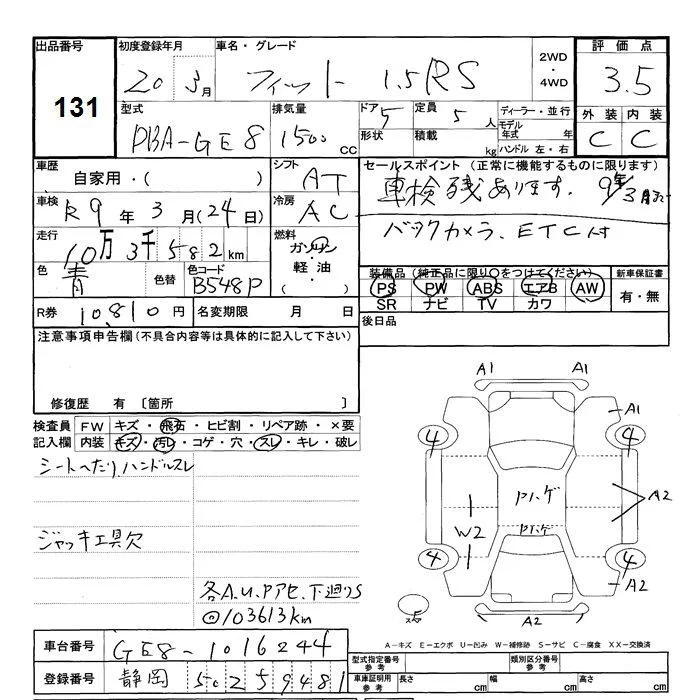 出品番号 131
初度登録年月 20 3月
車名・グレード フィット 1.5RS
2WD・4WD
評価点 3.5
外装 内装
C C
型式 DBA-GE8
排気量 1500 CC
ドア 5
形状
定員 5 人
積載 kg
ディーラー・並行
モデル年式 年
ハンドル 左・右
車歴 自家用・( )
シフト AT
車検 R9年3月(24日)
冷房 AC
走行 10万3千582km
燃料 ガソリン・軽油・( )
色 青 色替
色コード B548P
R券 10,810円
名変期限 月 日
セールスポイント(正常に機能するものに限ります)
車検残あります。9年3月
バックカメラ、ETC付
装備品(純正品に限り○をつけてください)
PS PW ABS エアB AW
SR ナビ TV カワ
新車保証書 有・無
後日品
注意事項申告欄(不具合内容等は具体的に記入して下さい)
修復歴 有〔箇所 〕
検査員記入欄
FW キズ・飛石・ヒビ割・リペア跡・×要
内装 キズ・汚レ・コゲ・穴・スレ・キレ・破レ
シートへたり、ハンドルスレ
ジャッキ工具欠
各A.U.Pアセ、下廻りS
@103613km
A1 A1
A1
4 4
A2
W2
P1ハゲ
P1ハゲ
4 4
A2
A2
A-キズ E-エクボ U-凹み W-補修跡 S-サビ C-腐食 XX-交換済
車台番号 GE8-1016244
登録番号 静岡 502 5 9481
型式指定番号 参考
類別区分番号 参考
車庫証明用 参考 長さ cm 幅 cm 高さ cm